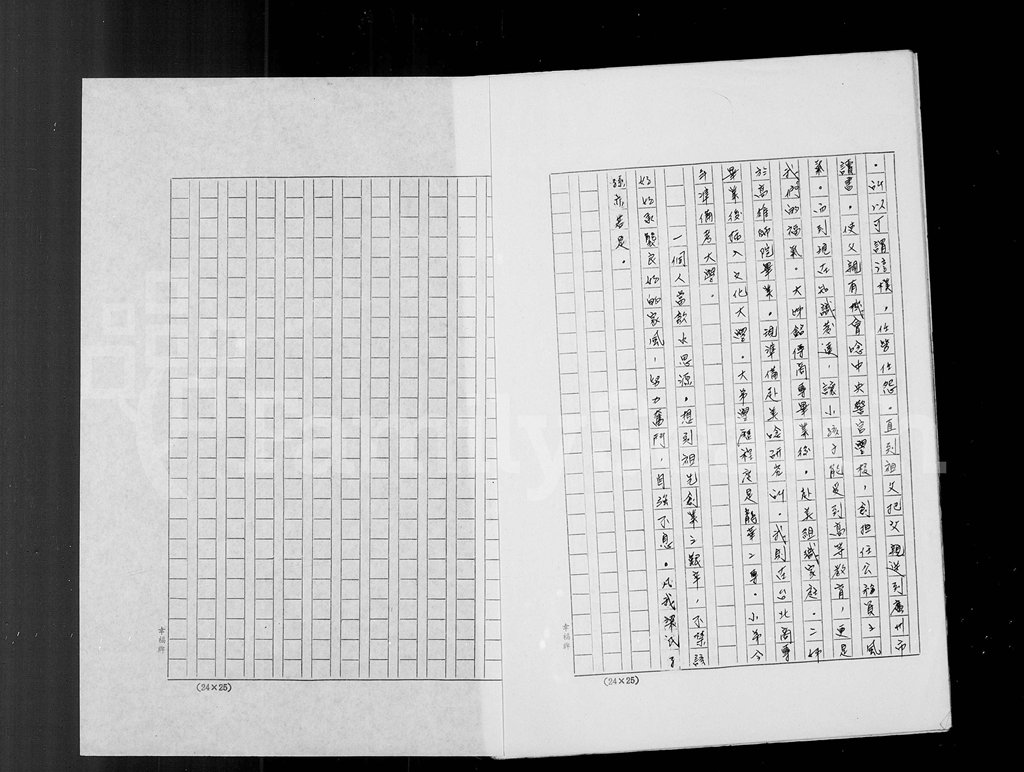 。所以可謂這樣，任勞任怨。直到祖父把父親送到廣州市
讀書，使父親有機會唸中央警官學校，創担任公務員之風
氣。而到現在知識普遍，讓小孩子能受到高等教育，更是
我們的福氣。大姊銘傳商專畢業後，赴美組織家庭。二姊
於高雄師院畢業，現準備赴美唸研究所。我則在台北商專
畢業後插入文化大學。大弟學歷程度是龍華工專。小弟今
年準備考大學。
一個人當飲水思源。想到祖先創業之艱辛，不禁該
好好承襲良好的家風，努力奮鬥，自強不息。凡我梁氏子
孫亦若是。
幸福牌
(24×25)
幸福牌
(24×25)